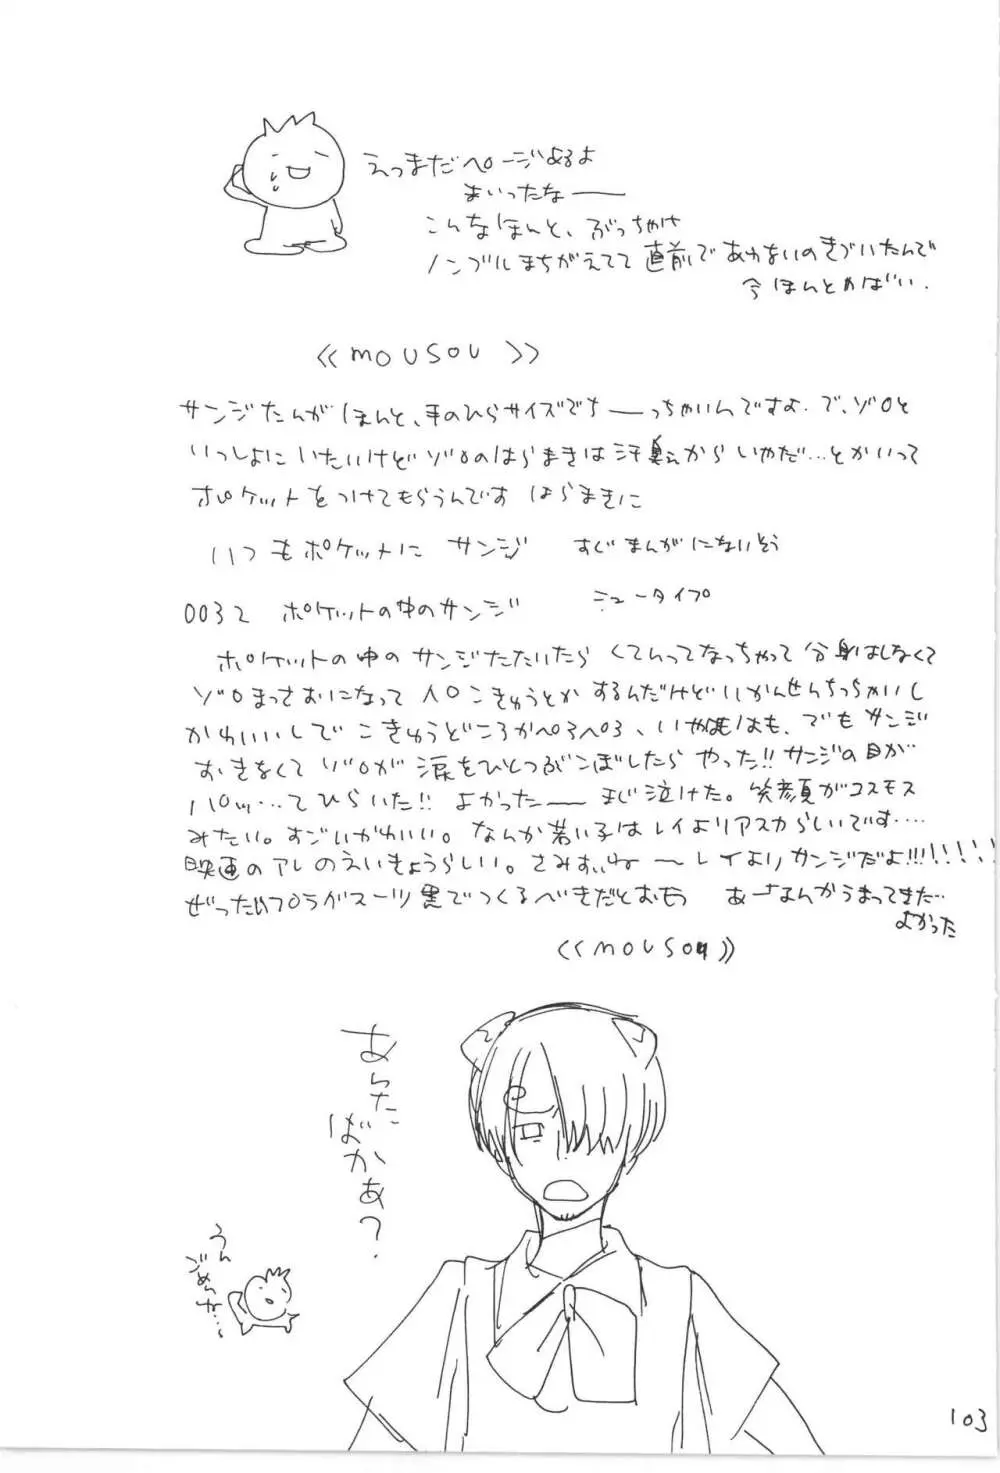 えっまだページあるよ
まいったなー
こんなほんと、ぶっちゃけ
ノンブルまちがえてて直前であわないのきづいたんで
今ほんとやばい.
《MOUSOU》
サンジたんがほんと、手のひらサイズでちーっちゃいんですよ. で、ゾロと
いっしょにいたいけどゾロのはらまきは汗臭えからいやだ…とかいって
ポケットをつけてもらうんです はらまきに
いつもポケットに サンジ すぐまんがにないそう
0032 ポケットの中のサンジ ニュータイプ
ポケットの中のサンジたたいたら くてんってなっちゃって分身はしなくて
ゾロまっさおになって人口こきゅうとかするんだけどいかんせんちっちゃいし
かわいいしでこきゅうどころかペろペろ、いやはも、でもサンジ
おきなくてゾロが涙をひとつぶこぼしたらやった!!サンジの目が
パッ…てひらいた!! よかったー まじ泣けた。笑顔がコスモス
みたい。すごいかわいい。なんか若い子はレイよりアスカらしいです….
映画のアレのえいきょうらしい。さみすぃね～レイよりサンジだよ!!!!!!!!
ぜったいプラグスーツ黒でつくるべきだとおもう あーなんかうまってきた…
よかった
《MOUSOU》
あんた
ばかぁ?
うん
ごめんな…
103